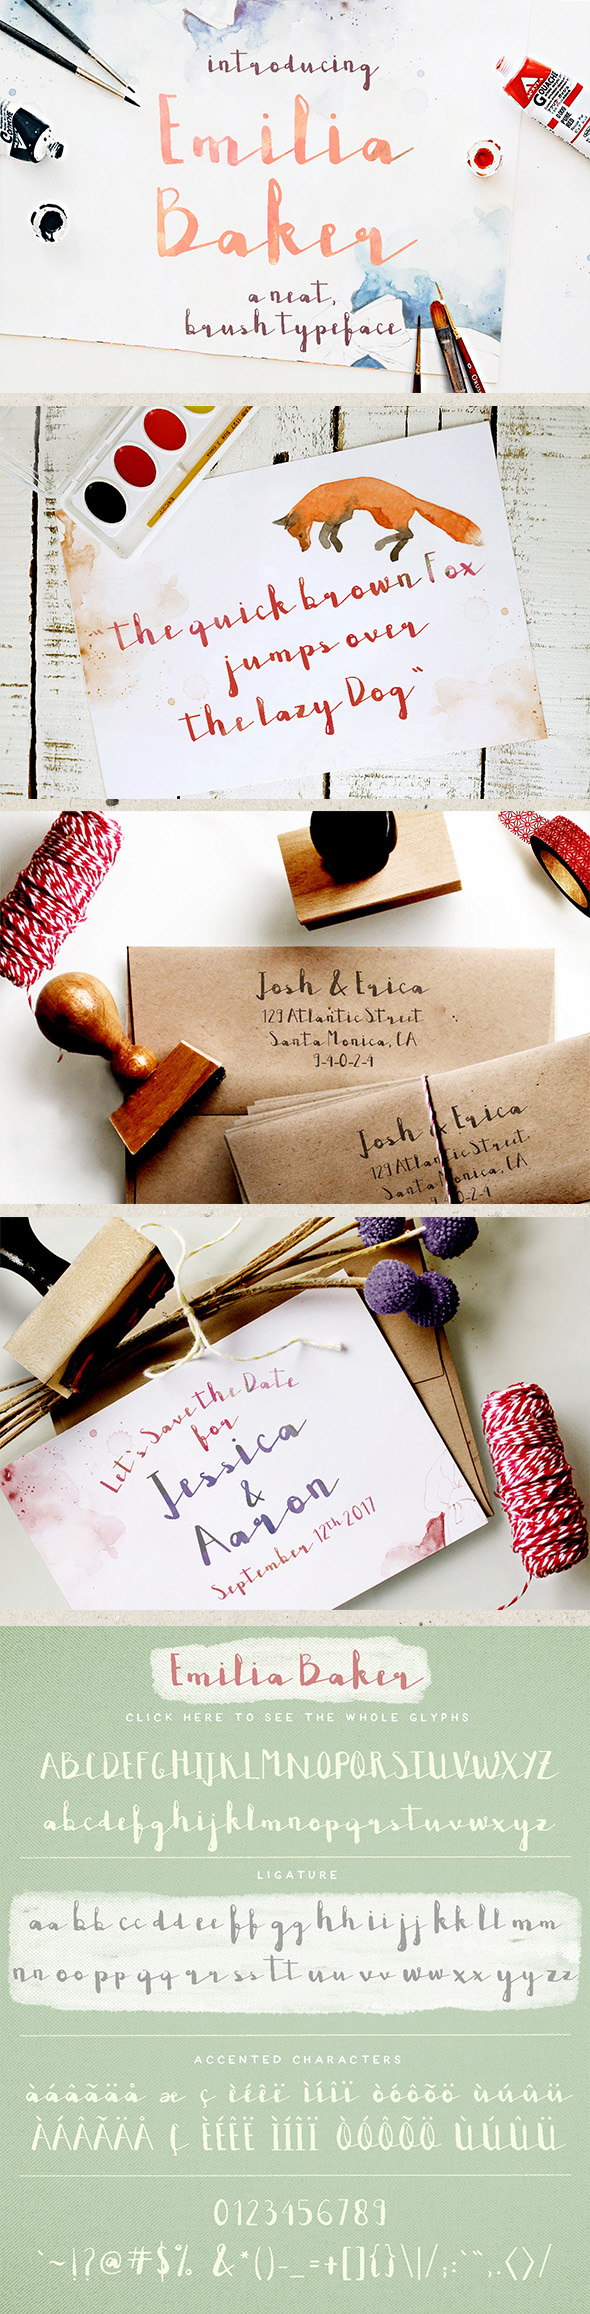 introducing
Emilia
Baker
a neat,
brush typeface
GOUACHE
GOUACHE
"the quick brown Fox
jumps over
the lazy Dog"
Josh & Erica
129 Atlantic Street
Santa Monica, CA
9-4-0-2-4
Josh & Erica
129 Atlantic Street
Santa Monica, CA
9-4-0-2-4
Let's Save the Date
for
Jessica
&
Aaron
September 12th 2017
Emilia Baker
CLICK HERE TO SEE THE WHOLE GLYPHS
ABCDEFGHIJKLMNOPQRSTUVWXYZ
abcdefghijklmnopqrstuvwxyz
LIGATURE
aa bb cc dd ee ff gg hh ii jj kk ll mm
nn oo pp qq rr ss tt uu vv ww xx yy zz
ACCENTED CHARACTERS
àáâãäå æ ç èéêë ìíîï òóôõö ùúûü
ÀÁÂÃÄÅ Ç ÈÉÊË ÌÍÎÏ ÒÓÔÕÖ ÙÚÛÜ
0123456789
`~!?@#$% &*()-_=+[]{}\|/;:`",.<>/